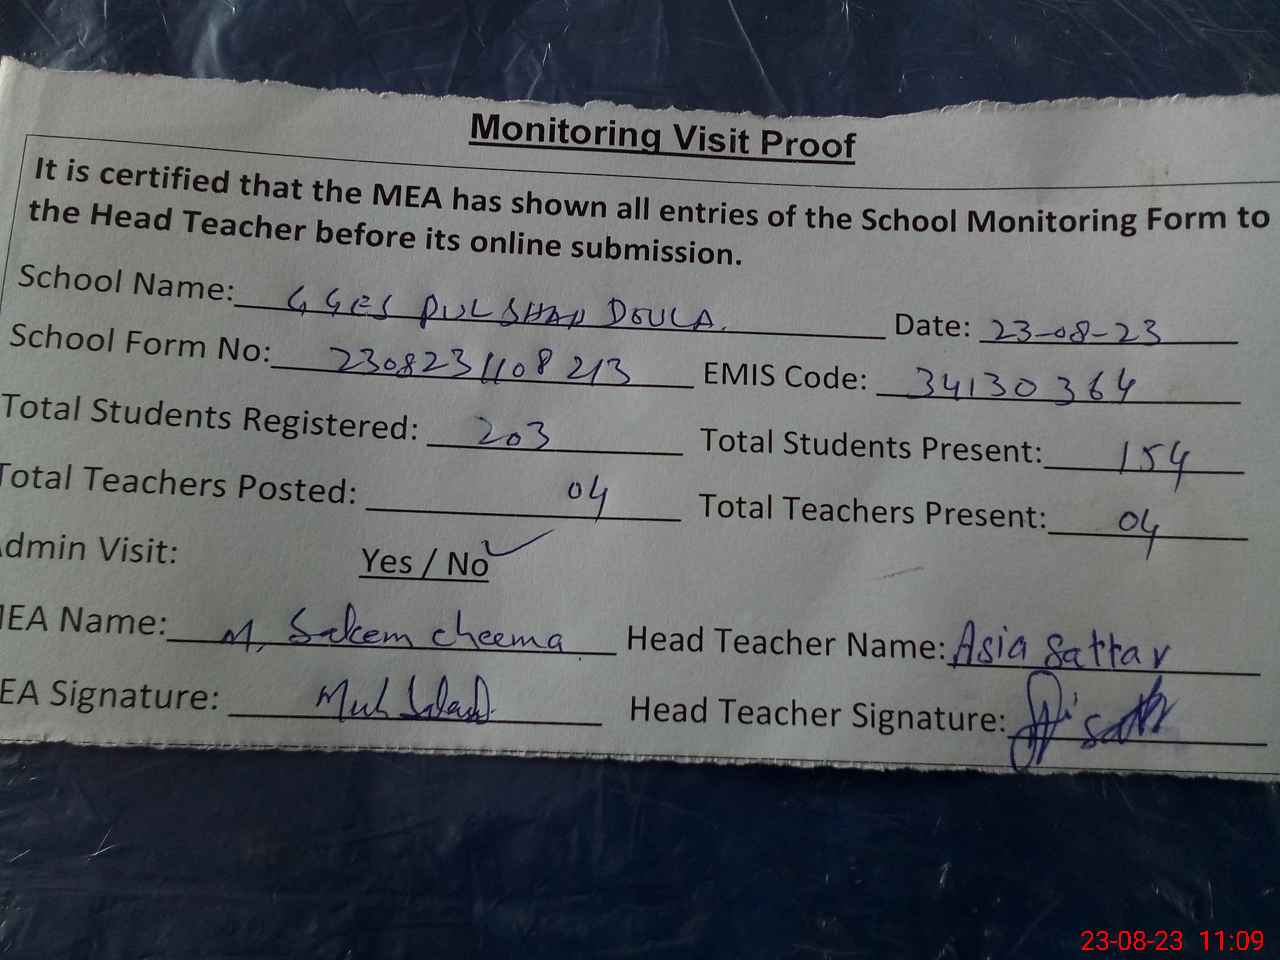 Monitoring Visit Proof
It is certified that the MEA has shown all entries of the School Monitoring Form to
the Head Teacher before its online submission.
School Name: GGES PUL SHAH DOULA. Date: 23-08-23
School Form No: 2308231108213 EMIS Code: 34130364
Total Students Registered: 203 Total Students Present: 154
Total Teachers Posted: 04 Total Teachers Present: 04
dmin Visit: Yes / No ✓
EA Name: M. Saleem cheema Head Teacher Name: Asia Sattar
EA Signature: Head Teacher Signature:
23-08-23 11:09